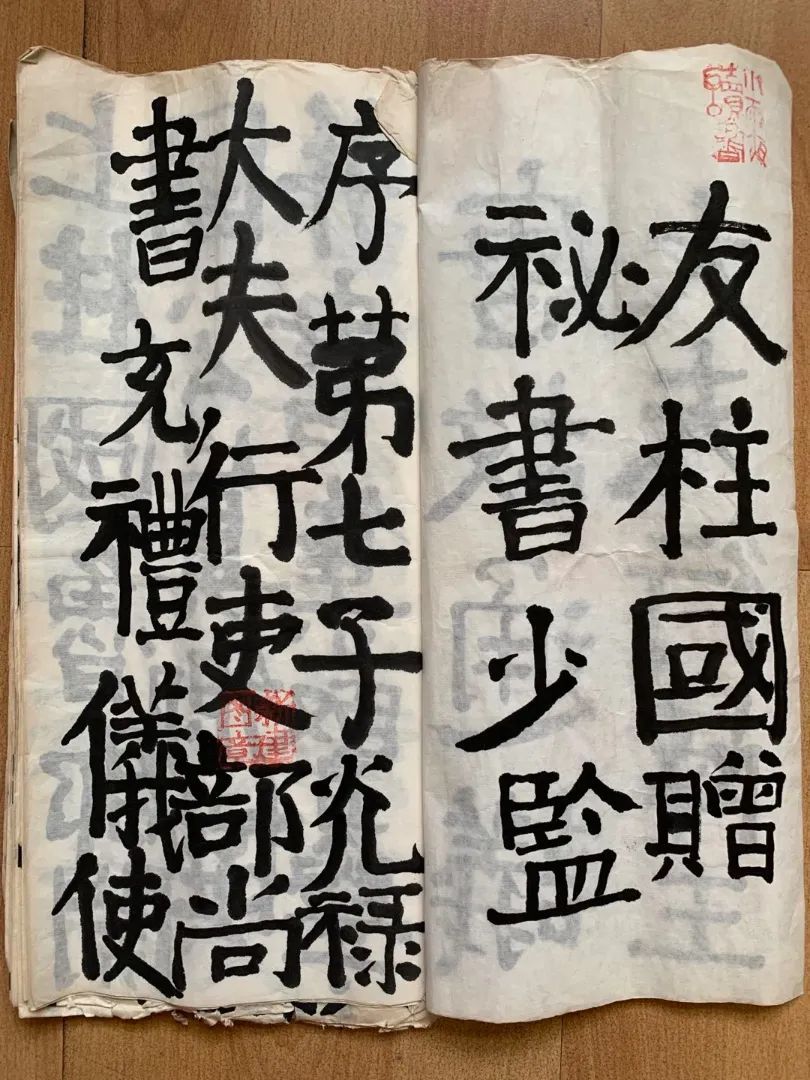 友柱國贈
祕書少監
序苐七子光禄
大夫行吏部尚
書充禮儀使